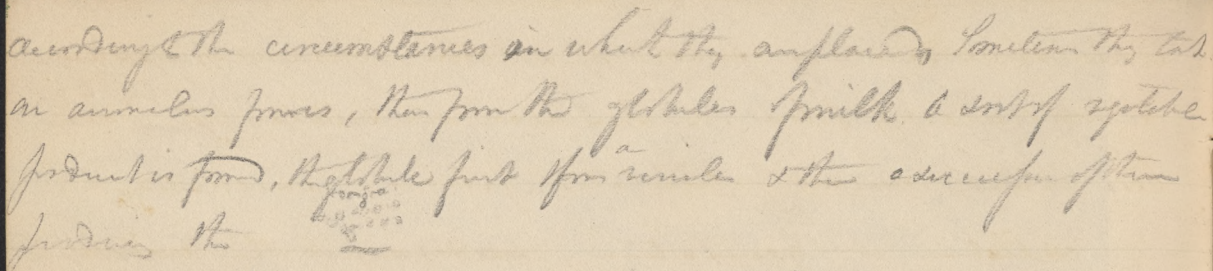 according to the circumstances in which they are placed, Sometimes they take
on anomalous forms, thus from the globules of milk a sort of
product is formed, the globule first forms a & then a succession of them
produces the